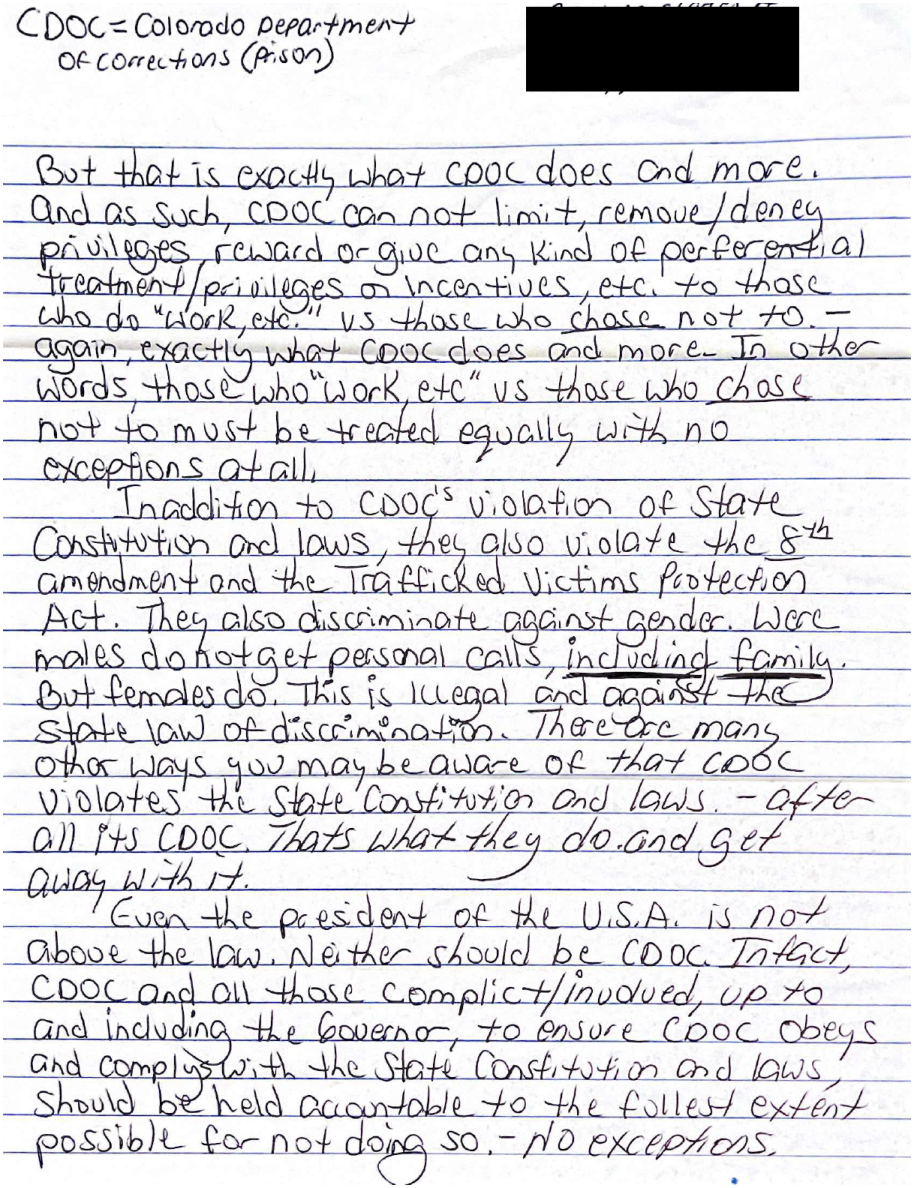 CDOC = Colorado Department
OF corrections (Prison)
But that is exactly what CDOC does and more.
And as such, CDOC can not limit, remove/deney
privileges, reward or give any kind of perferential
treatment/privileges or incentives, etc. to those
who do "work, etc." vs those who chose not to. -
again, exactly what CDOC does and more. In other
words, those who "work, etc" vs those who chose
not to must be treated equally with no
exceptions at all.
Inaddition to CDOC's violation of State
Constitution and laws, they also violate the 8th
amendment and the Trafficked Victims Protection
Act. They also discriminate against gender. Were
males do not get personal calls, including family.
But females do. This is Illegal and against the
State law of discrimination. There are many
other ways you may be aware of that CDOC
violates the State Constitution and laws - after
all its CDOC. Thats what they do. and get
away with it.
Even the president of the U.S.A. is not
above the law. Neither should be CDOC. Infact,
CDOC and all those complict/involved, up to
and including the Governor, to ensure CDOC obeys
and complys with the State Constitution and laws,
should be held accountable to the fullest extent
possible for not doing so. - No exceptions.